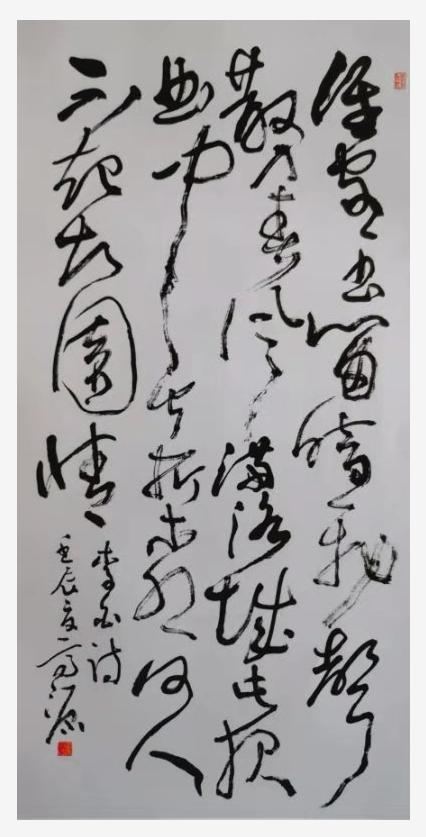 谁家玉笛暗飞声
散入春风满洛城此夜
曲中闻折柳何人
不起故园情
李白诗
壬辰夏